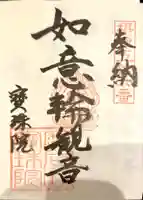 奉納
如意輪観音
寳珠院